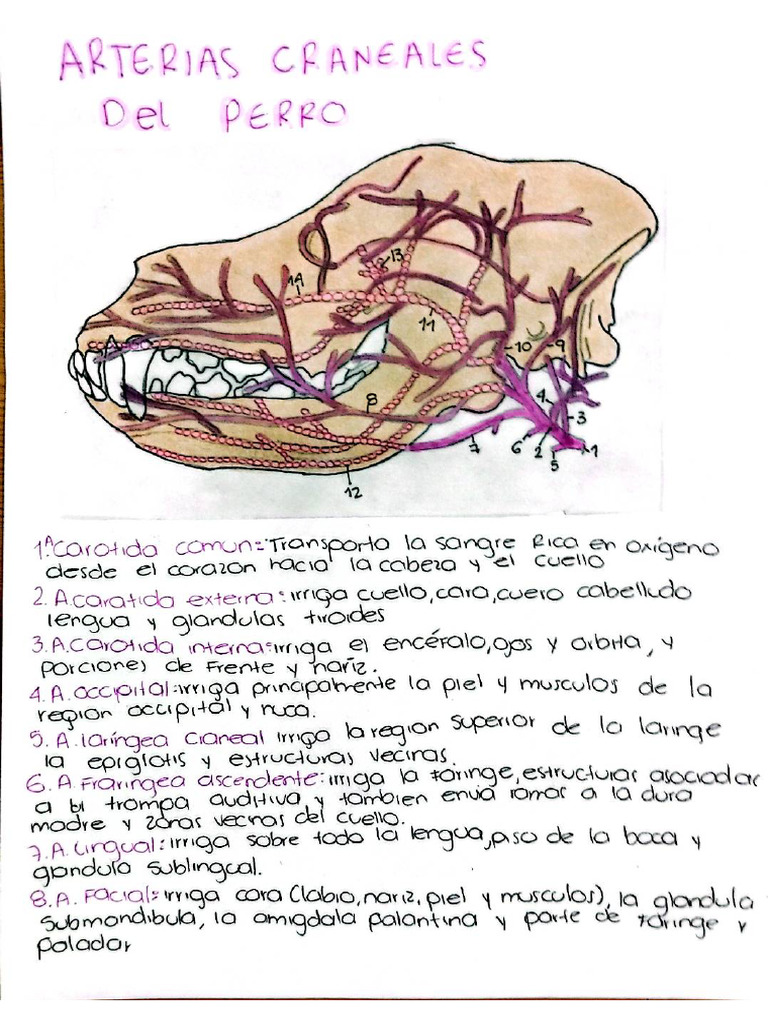 ARTERIAS CRANEALES
Del PERRO
14
13
11
10
9
8
4
3
7
6
2
5
1
12
1.A carotida comun: Transporta la sangre Rica en oxígeno
desde el corazon hacia la cabeza y el cuello
2. A.caratida externa: irriga cuello, cara, cuero cabelludo
lengua y glandulas tiroides
3. A.carotida interna: irriga el encéfalo, ojos y orbita, y
porciones de Frente y nariz.
4. A. occipital: irriga principalmente la piel y musculos de la
region occipital y nuca.
5. A. laríngea craneal irriga la region superior de la laringe
la epiglotis y estructuras vecinas.
6. A. Fraringea ascendente: irriga la faringe, estructuras asociadas
a la trompa auditiva y tambien envia ramas a la dura
madre y zonas vecinas del cuello.
7. A. Lingual: irriga sobre todo la lengua, piso de la boca y
glandula sublingual.
8. A. Facial: irriga cara (labio, nariz, piel y musculos), la glandula
submandibula, la amigdala palantina y parte de faringe y
paladar